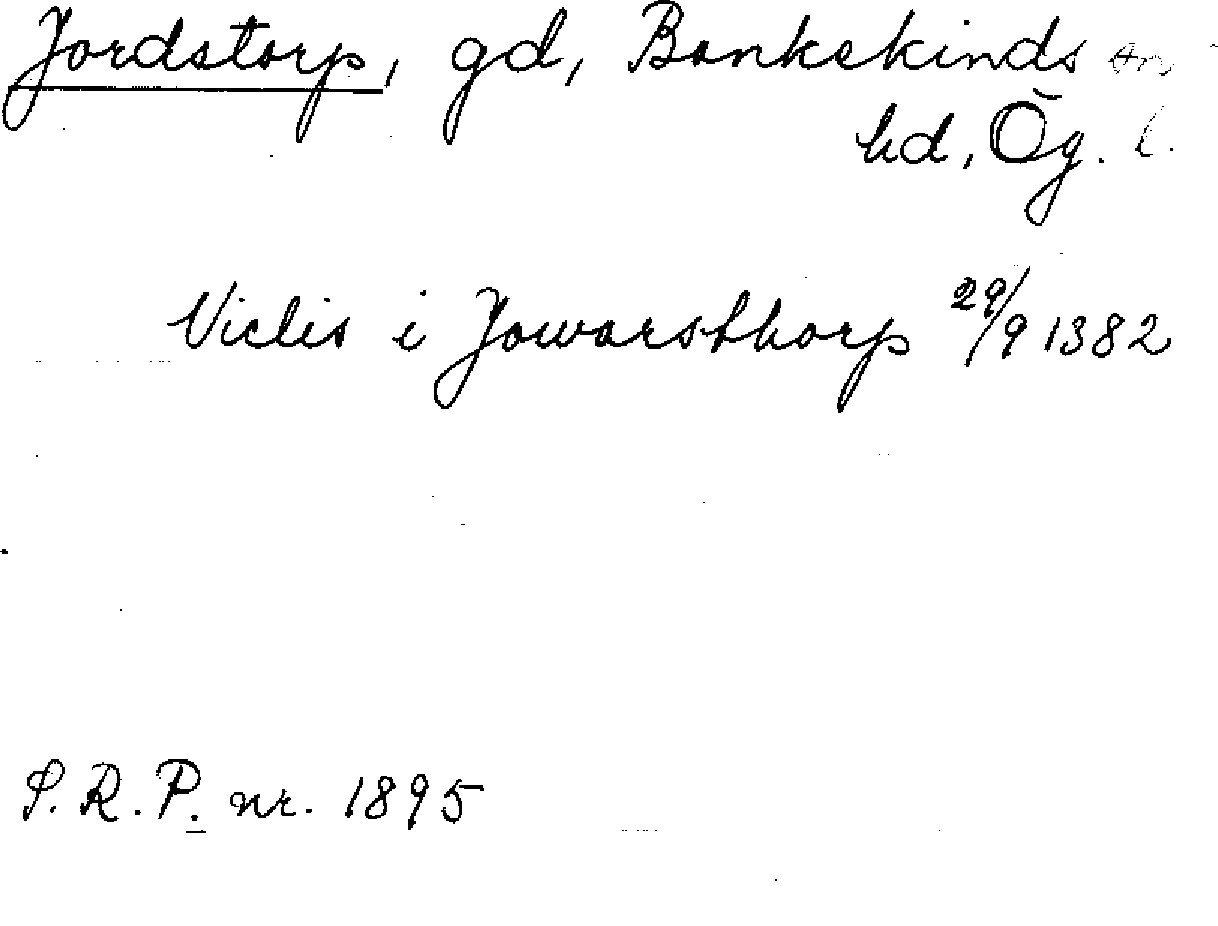 Jordstorp, gd, Bankekinds sn,
hd, Ög. l.
Viclis i Jowarsthorp 29/9 1382
S. R. P. nr. 1895